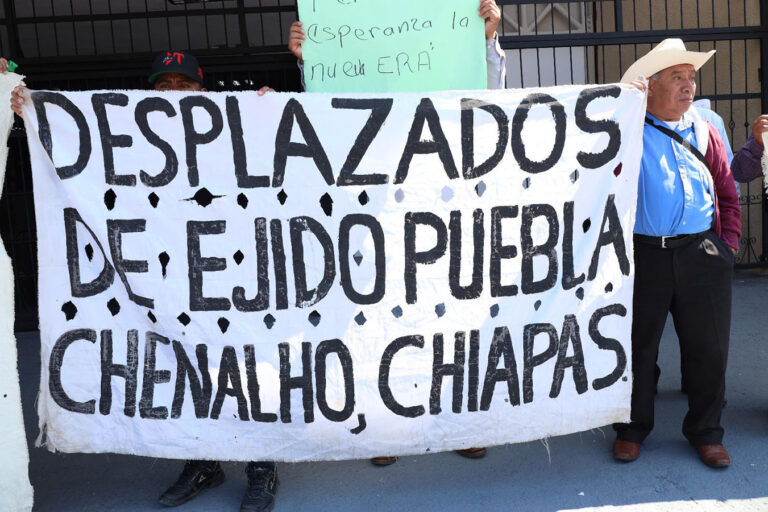 esperanza la
nueva ERA"
DESPLAZADOS
DE EJIDO PUEBLA
CHENALHO, CHIAPAS.